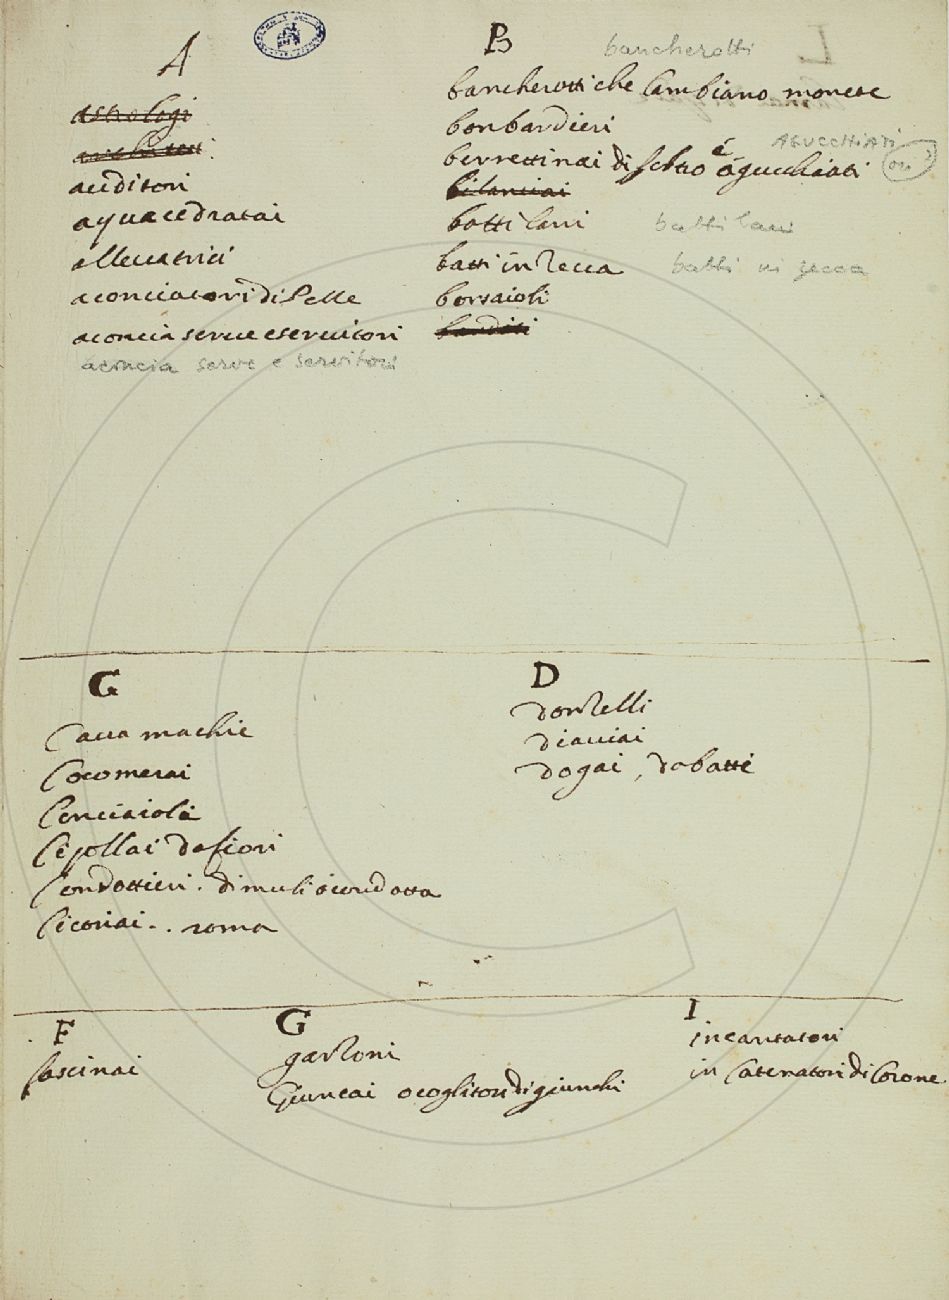 A
astrologi
auditori
aquacedratai
alleuatrici
aconciatori di Selle
aconcia serue e seruitori
aconcia serve e servitori
B
bancherotti
bancherotti che Cambiano monete
bonbardieri
AGUCCHIARI
berrettinai di feltro é agucchiati
ori?
bilanciai
batti lani
batti lani
batti in Zecca
batti in zecca
borsaioli
banditi
C
Caua machie
Cocomerai
Cenciaioli
Cipollai da fiori
Condottieri . di muli ò condotta
Cicoriai . . roma
D
donzelli
diacciai
dogai , da batti
F
fascinai
G
garzoni
Giuncai o coglitori di giunchi
I
incantatori
in Catenatori di Corone